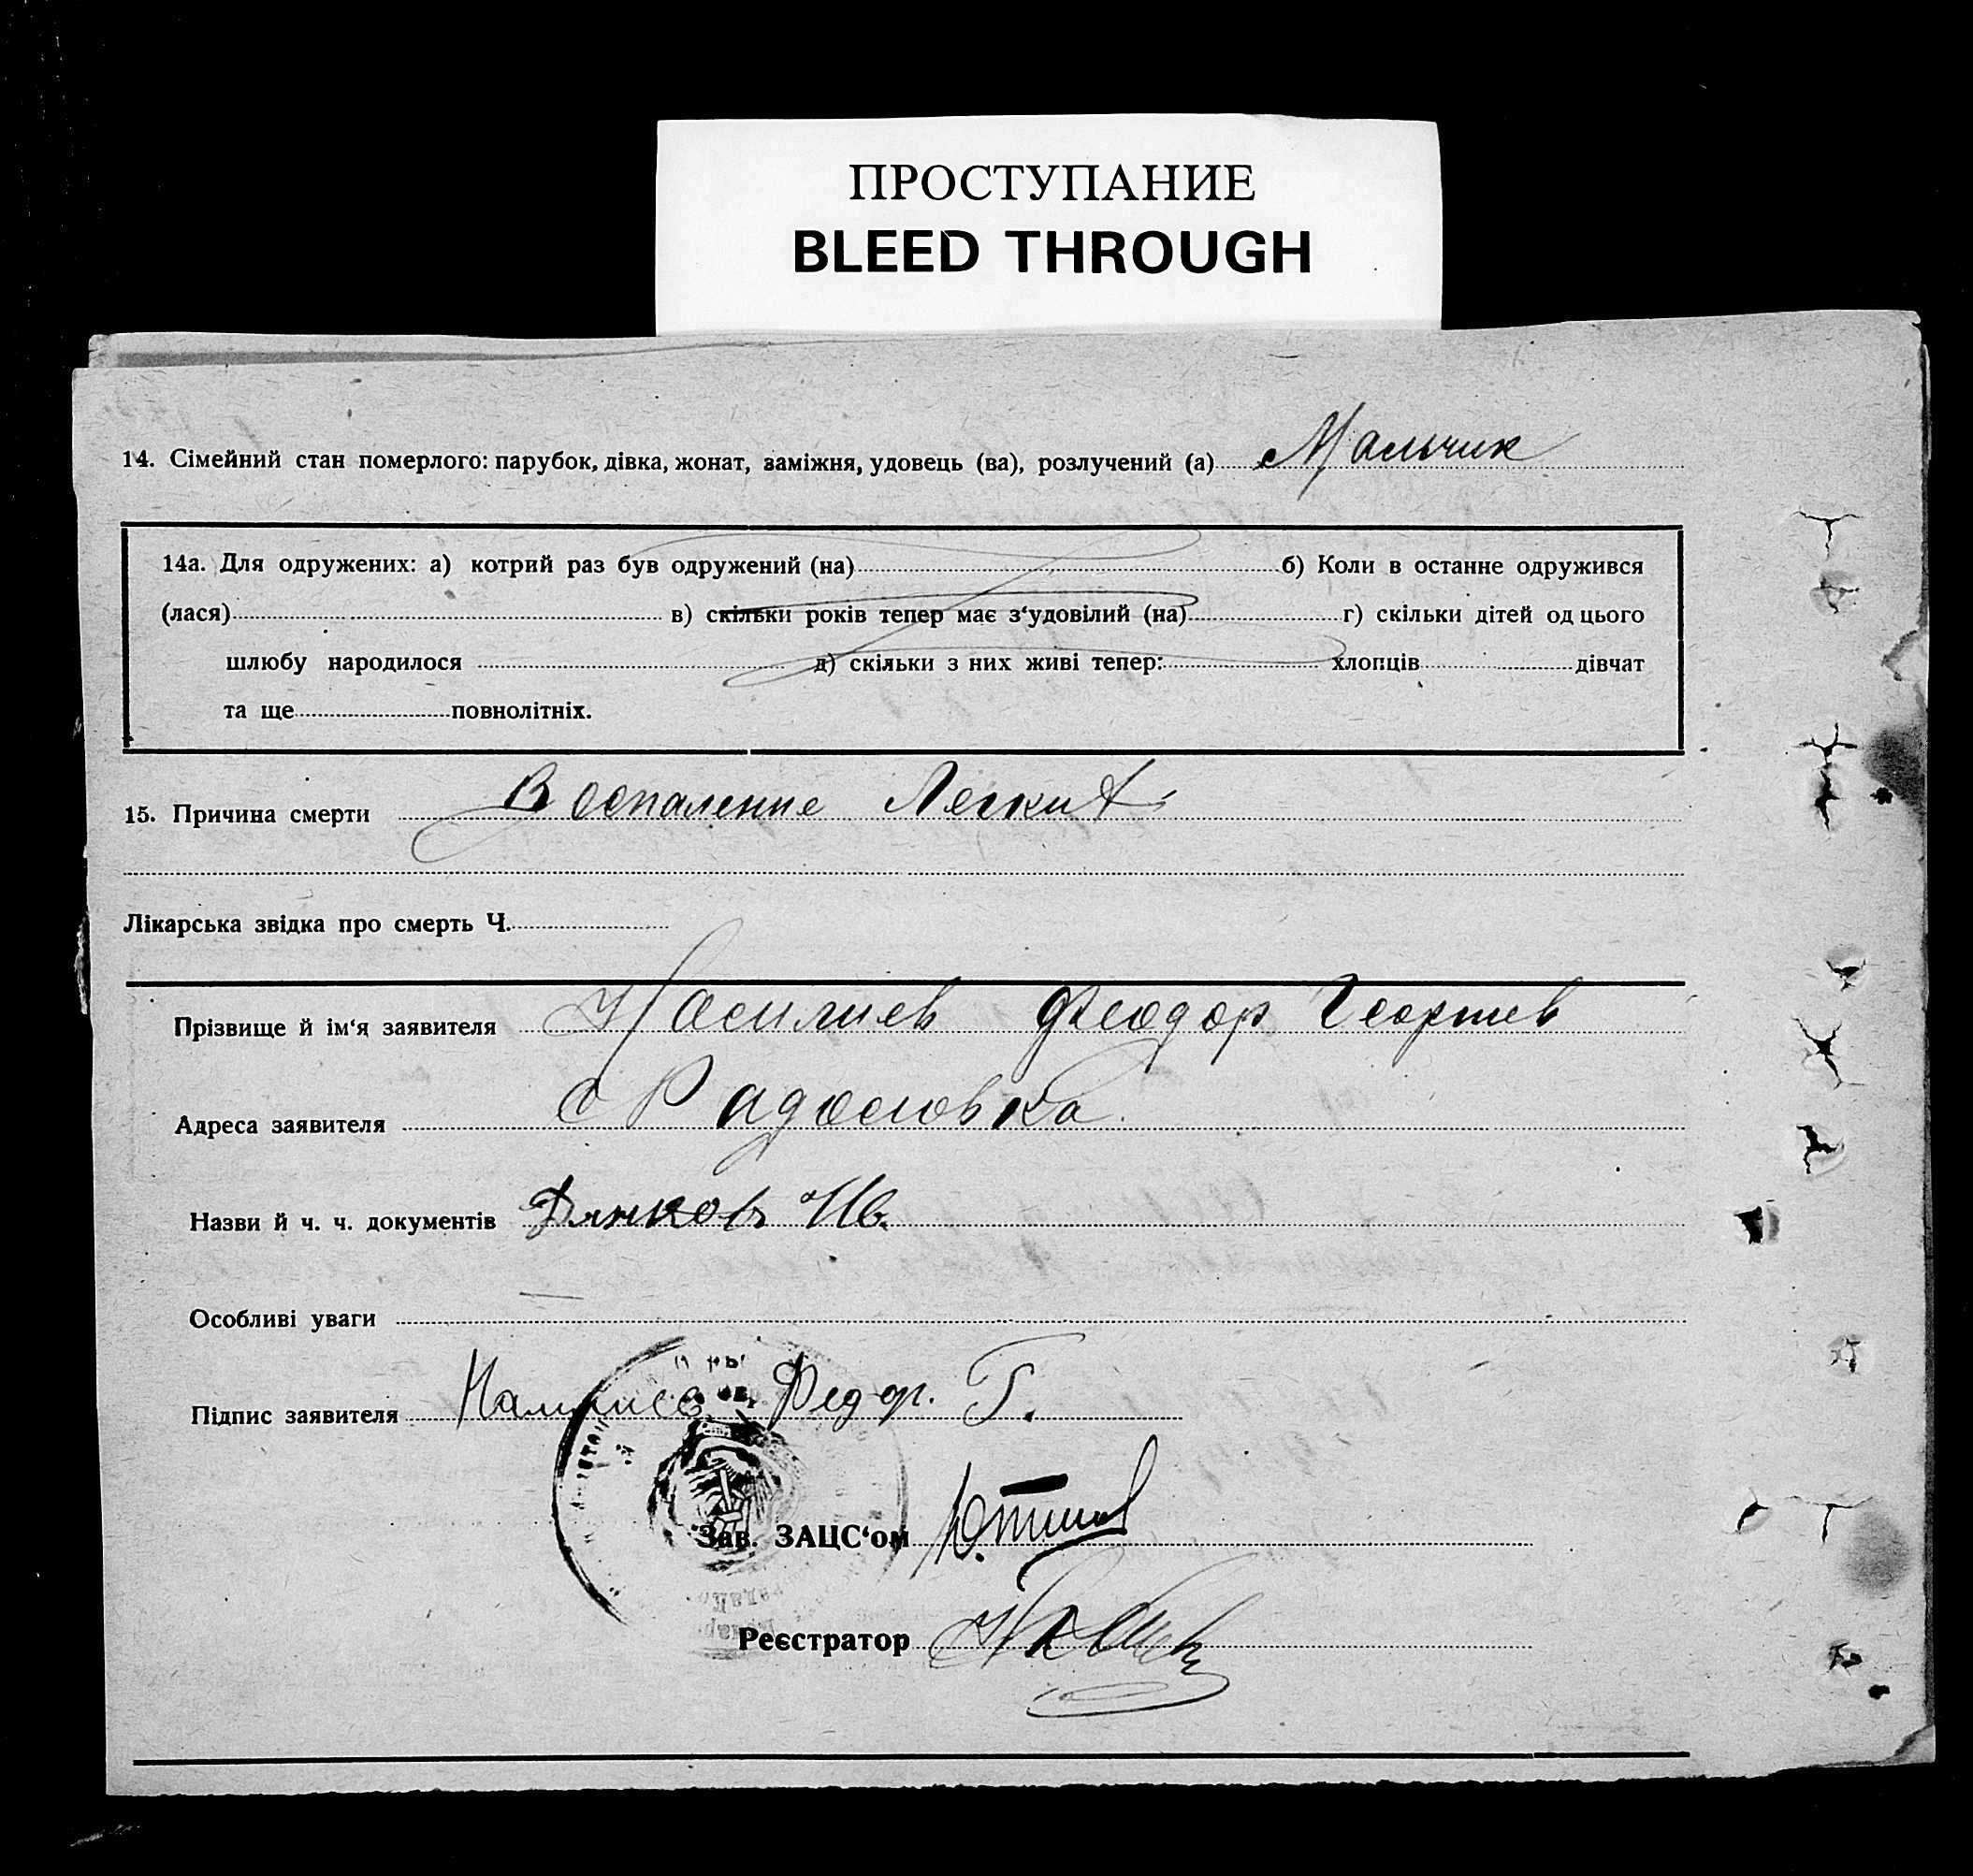 ПРОСТУПАНИЕ
BLEED THROUGH
14. Сімейний стан померлого: парубок, дівка, жонат, заміжня, удовець (ва), розлучений (а) Мальчик
14а. Для одружених: а) котрий раз був одружений (на) б) Коли в останне одружився
(лася) в) скільки років тепер має з‘удовілий (на) г) скільки дітей од цього
шлюбу народилося д) скільки з них живі тепер: хлопців дівчат
та ще повнолітніх.
15. Причина смерти Воспаление Легких
Лікарська звідка про смерть Ч.
Прізвище й ім‘я заявителя Феодор Георгиев
Адреса заявителя с
Назви й ч. ч. документів
Особливі уваги
Підпис заявителя Федор. Г.
Зав. ЗАЦС‘ом
Реєстратор